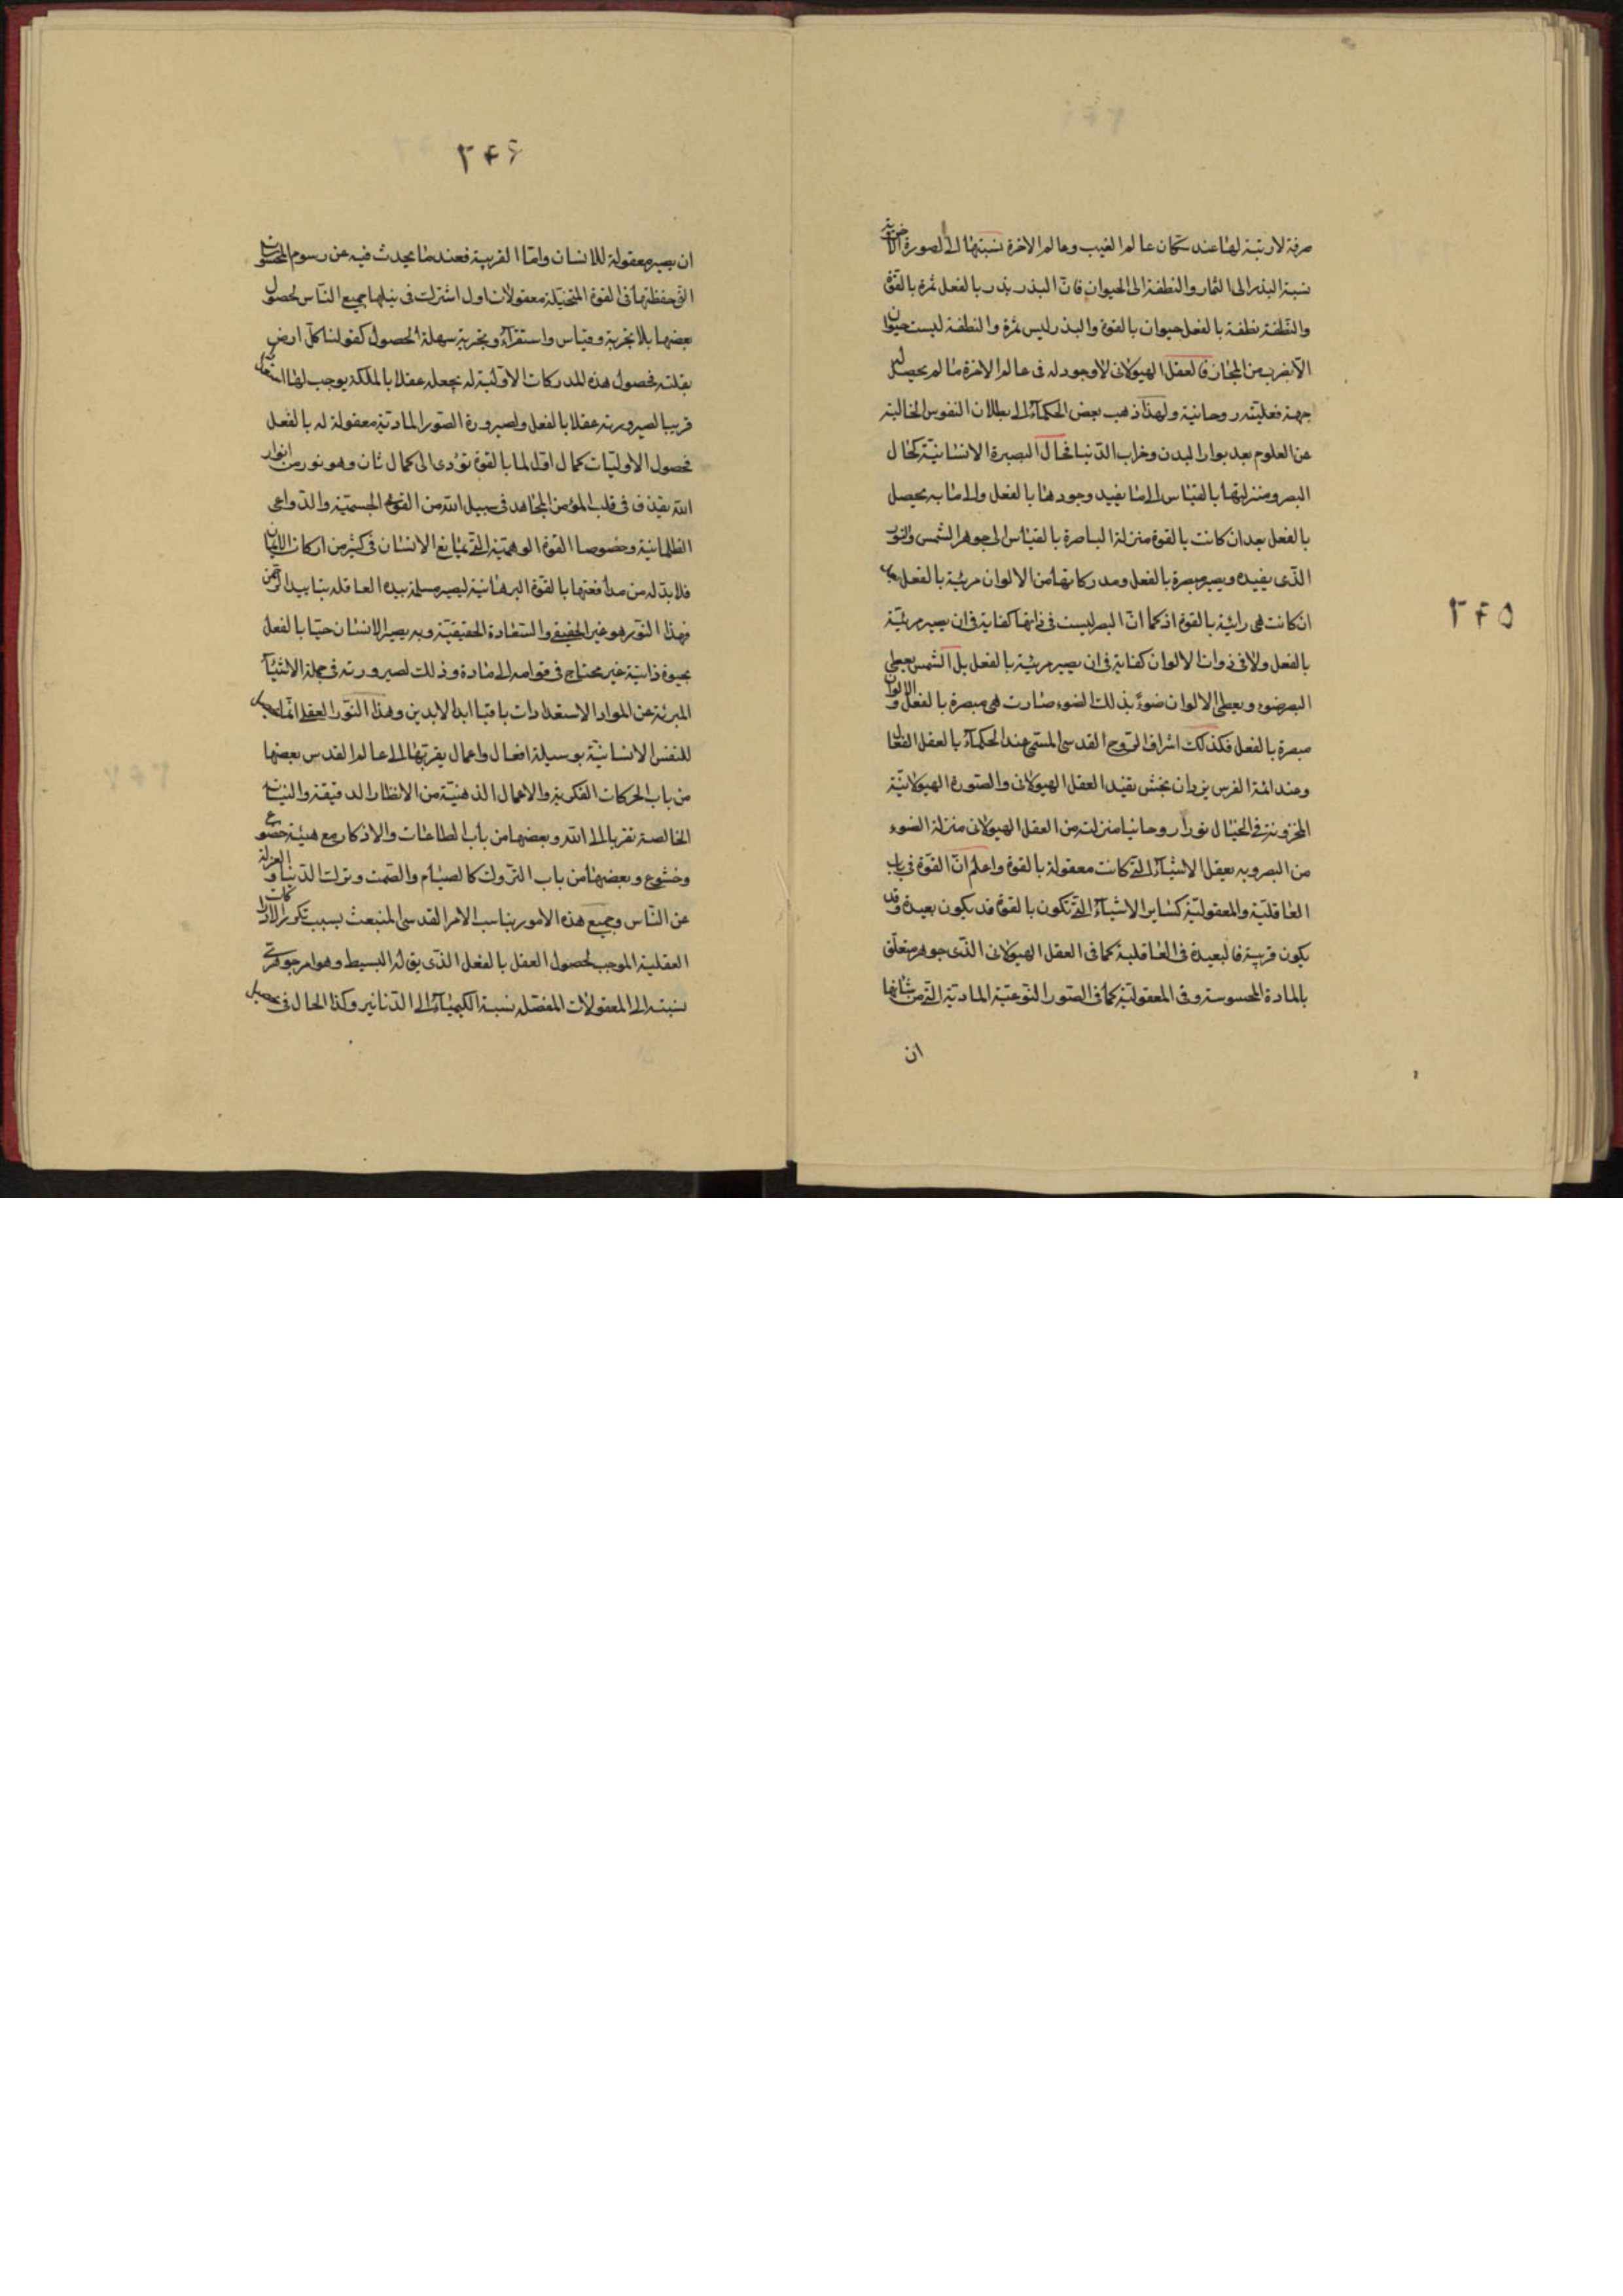 ۲۴۵
صرفة لا رتبة لها عند سكان عالم الغيب وعالم الاخرة نسبتها الى الصورة الاخروية
نسبة البذر الى الثمار والنطفة الى الحيوان فان البذر بذر بالفعل ثمرة بالقوة
والنطفة نطفة بالفعل حيوان بالقوة والبذر ليس ثمرة والنطفة ليست حيوان
الا بضرب من المجاز فالعقل الهيولانى لا وجود له فى عالم الاخرة ما لم يحصل له
جهة فعليته روحانية ولهذا ذهب بعض الحكماء الى بطلان النفوس الخالية
عن العلوم بعد بوار البدن وخراب الدنيا فحال البصيرة الانسانية كحال
البصر ومنزلتها بالقياس الى ما يفيد وجودها بالفعل والى ما به يحصل
بالفعل بعد ان كانت بالقوة منزلة الباصرة بالقياس الى جوهر الشمس والنور
الذى يفيده ويصير مبصرة بالفعل ومدركاتها من الالوان مرئية بالفعل بعد
ان كانت هى رائية بالقوة اذ كما ان البصر ليست فى ذاتها كفاية فى ان يصير مرئية
بالفعل ولا فى ذوات الالوان كفاية فى ان يصير مرئية بالفعل بل الشمس يعطى
البصر ضوء ويعطى الالوان ضوءً بذلك الضوء صارت هى مبصرة بالفعل والالوان
مبصرة بالفعل فكذلك اشراف الروح القدسى المسمى عند الحكماء بالعقل الفعال
وعند ائمة الفرس يزدان بخش يفيد العقل الهيولانى والصورة الهيولانية
المخزونة فى الخيال نوراً روحانيا منزلته من العقل الهيولانى منزلة الضوء
من البصر وبه يعقل الاشياء التى كانت معقولة بالقوة واعلم ان القوة فى باب
العاقلية والمعقولية كساير الاشياء التى تكون بالقوة قد يكون بعيدة وقد
يكون قريبة فالبعيدة فى العاقلية كما فى العقل الهيولانى الذى جوهر متعلق
بالمادة المحسوسة وفى المعقولية كما فى الصور النوعية المادية التى من شانها
ان
۲۴۶
ان يصير معقولة للانسان واما القريبة فعند ما يحدث فيه عن رسوم المحسوسات
التى حفظتها فى القوة المتخيلة معقولات اول اشتركت فى نيلها جميع الناس لحصول
بعضها بلا تجربة وقياس واستقراء وتجربة سهلة الحصول كقولنا كل ارض
ثقيلة فحصول هذه المدركات الاولية له يجعله عقلا بالملكة يوجب لها استعدادا
قريبا لصيرورته عقلا بالفعل ولصيرورة الصور المادية معقولة له بالفعل
فحصول الاوليات كمال اول لما بالقوة تؤدى الى كمال ثان وهو نور من انوار
الله يقذف فى قلب المؤمن المجاهد فى سبيل الله من القوى الجسمية والدواعى
الظلمانية وخصوصا القوة الوهمية التى تمانع الانسان فى كثير من اركان الايمان
فلا بد له من مدافعتها بالقوة البرهانية ليصير مسلمة بيده العاقلة بتاييد الرحمن
فهذا النور هو خير الحقيقى والسعادة الحقيقية وبه يصير الانسان حيا بالفعل
بحيوة ذاتية غير محتاج فى قوامه الى مادة وذلك لصيرورته فى جملة الاشياء
المبرئة عن المواد الاستعدادات باقيا ابد الابدين وهذا النور العقلى انما يحصل
للنفس الانسانية بوسيلة افعال واعمال يقربها الى عالم القدس بعضها
من باب الحركات الفكرية والاعمال الذهنية من الانظار الدقيقة والنيات
الخالصة تقربا الى الله وبعضها من باب الطاعات والاذكار مع هيئة خضوع
وخشوع وبعضها من باب التروك كالصيام والصمت وترك الدنيا والعزلة
عن الناس وجميع هذه الامور يناسب الامر القدسى المنبعث بسبب تكرر الادراكات
العقلية الموجب لحصول العقل بالفعل الذى يق له البسيط وهو امر جوهرى
نسبته الى المعقولات المفصلة نسبة الكيمياء الى الدنانير وكذا الحال فى تحصيل